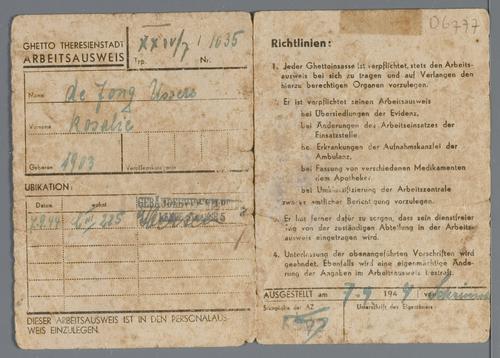 GHETTO THERESIENSTADT
ARBEITSAUSWEIS
XXIV/7 / 1035
Trp. Nr.
Name
de Jong
Vorname
Rosalie
Geboren 1903
Verdienstkategorie
UBIKATION:
Datum wohnt
7.9.44 225
DIESER ARBEITSAUSWEIS IST IN DEN PERSONALAUS
WEIS EINZULEGEN.
D6777
Richtlinien:
1. Jeder Ghettoinsasse ist verpflichtet, stets den Arbeits-
ausweis bei sich zu tragen und auf Verlangen den
hierzu berechtigten Organen vorzulegen.
2. Er ist verpflichtet seinen Arbeitsausweis
bei Übersiedlungen der Evidenz,
bei Änderungen des Arbeitseinsatzes der
Einsatzstelle
bei Erkrankungen der Aufnahmskanzlei der
Ambulanz,
bei Fassung von verschiedenen Medikamenten
dem Apotheker,
bei Umklassifizierung der Arbeitszentrale
zwecks amtlicher Berichtigung vorzulegen.
3. Er hat ferner dafür zu sorgen, dass sein dienstfreier
Tag von der zuständigen Abteilung in der Arbeits-
ausweis eingetragen wird.
4. Unterlassung der obenangeführten Vorschriften wird
geahndet. Ebenfalls wird eine eigenmächtige Ände-
rung der Angaben im Arbeitsausweis bestraft.
AUSGESTELLT am 7-9 1944
Stampiglie der AZ Unterschrift des Eigentümers